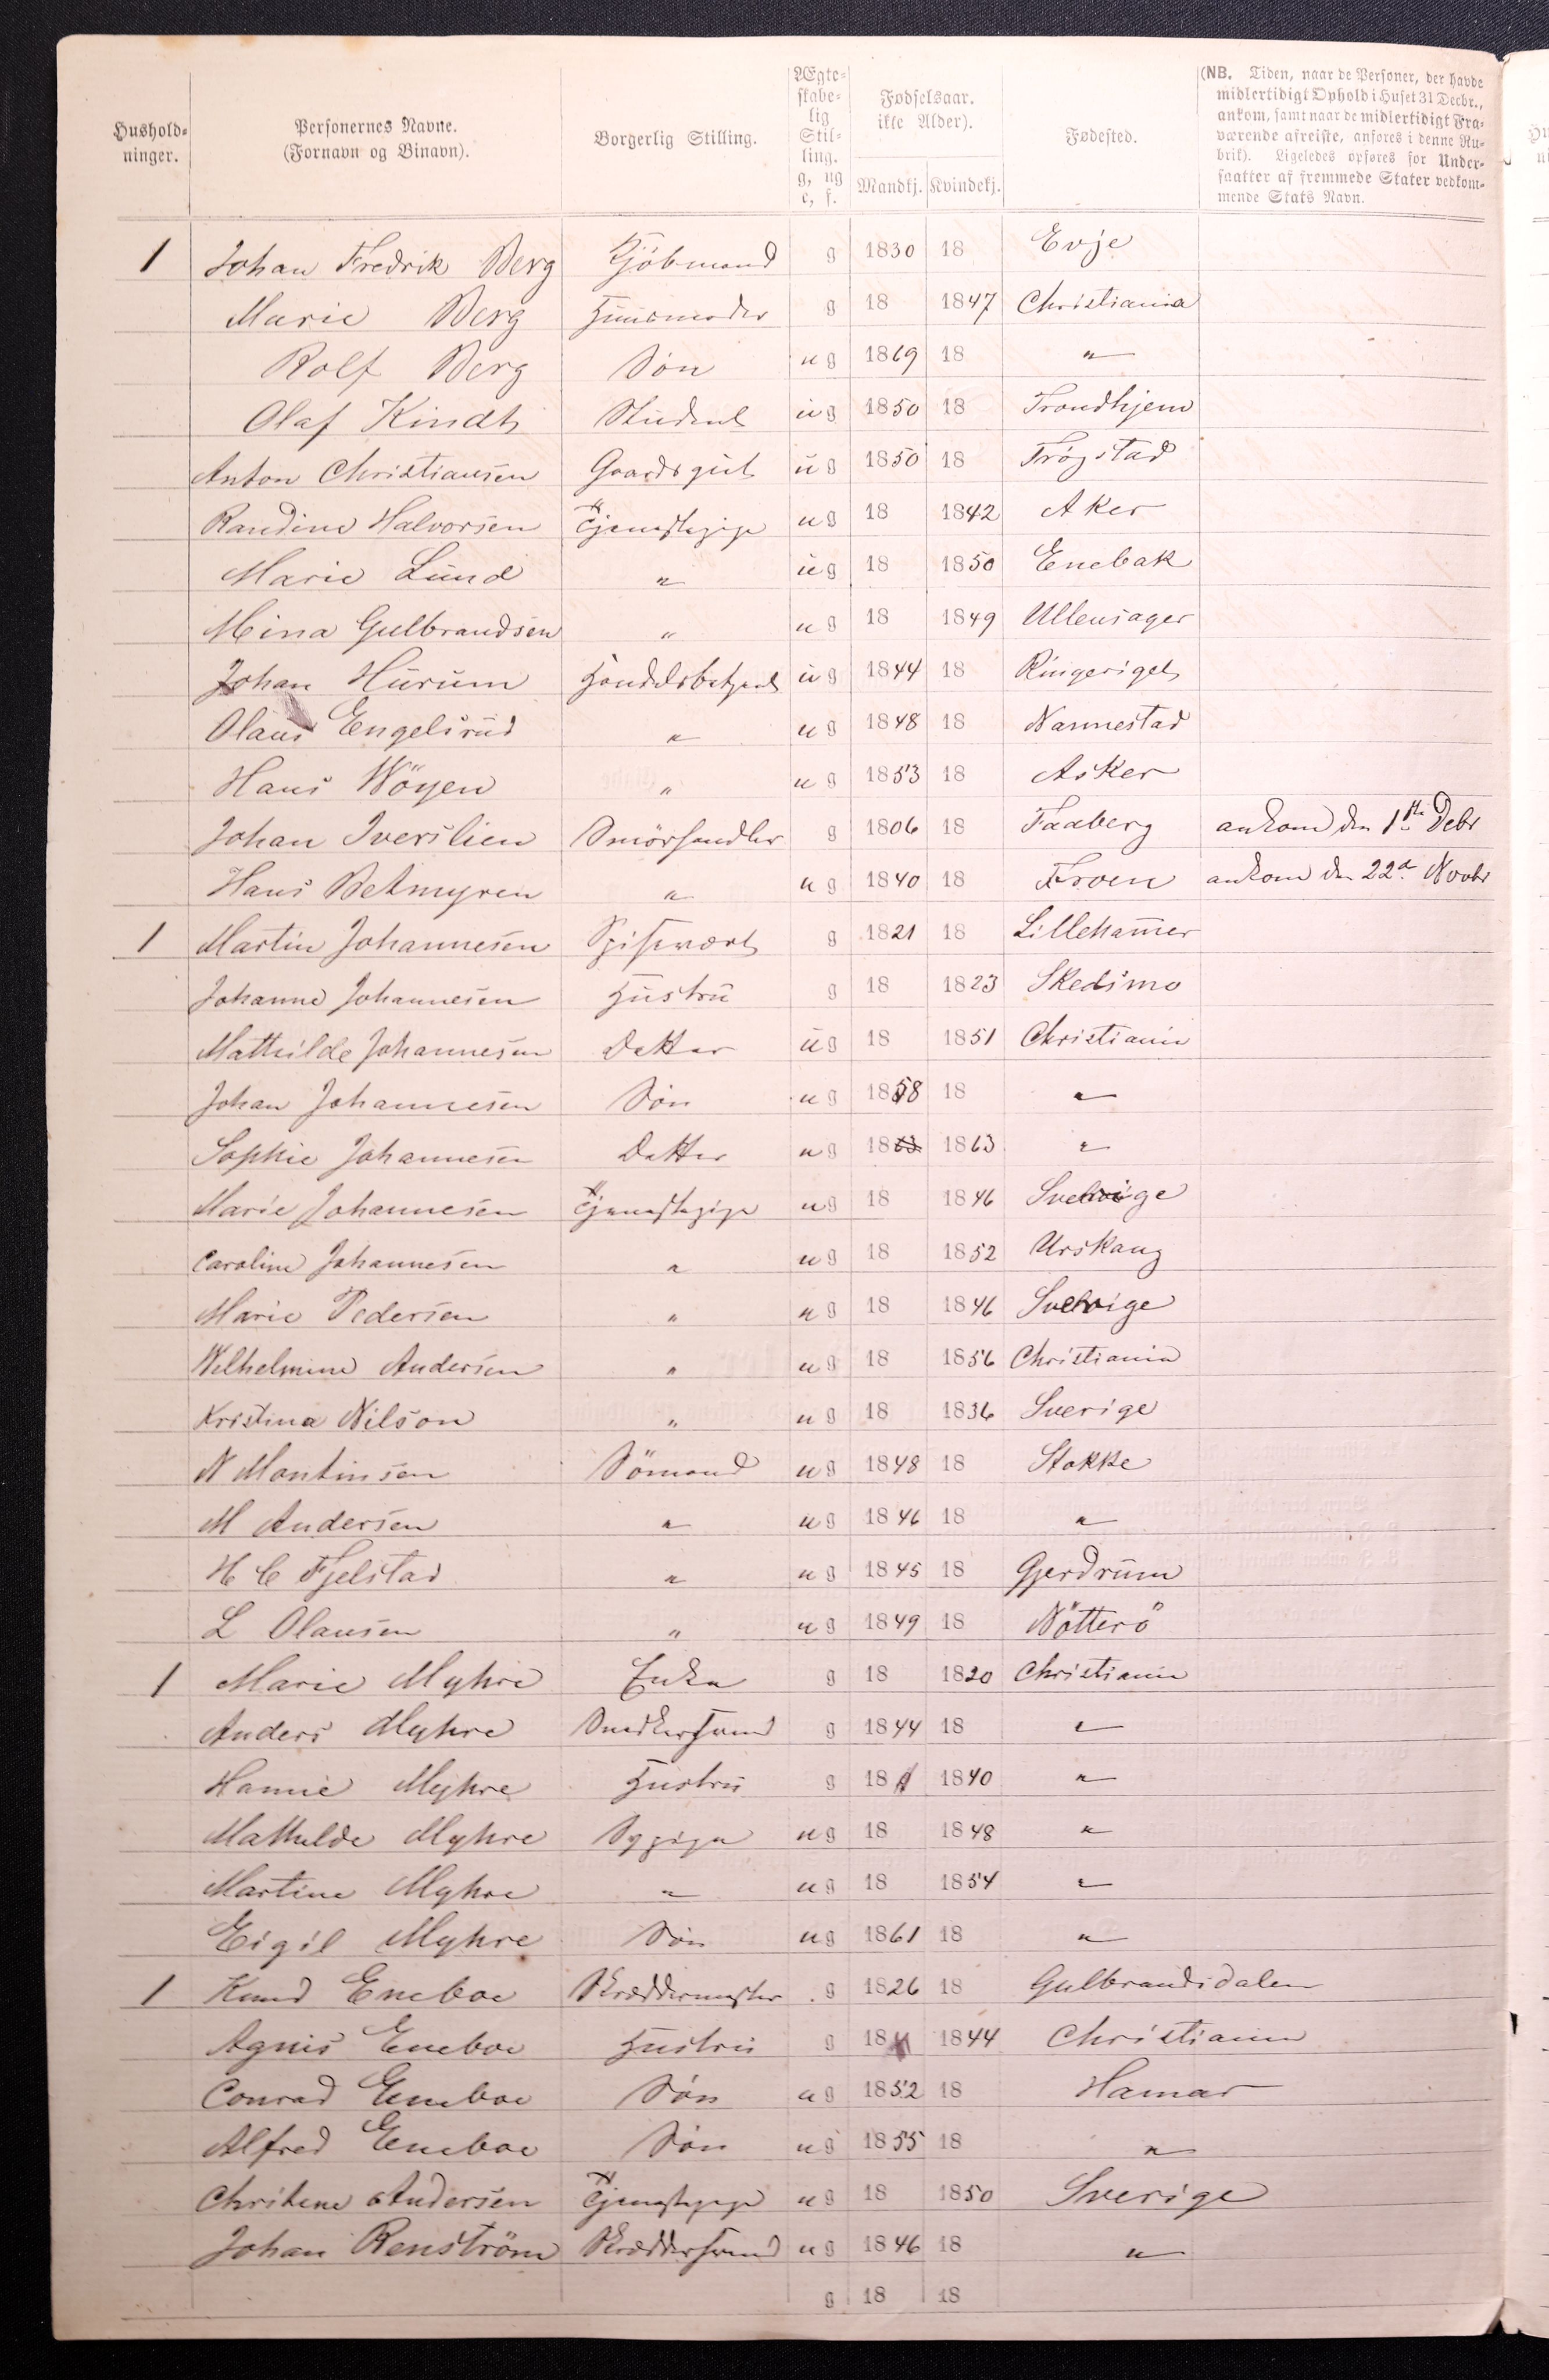 Hushold-
ninger.
Personernes Navne.
(Fornavn og Binavn).
Borgerlig Stilling.
Ægte-
skabe-
lig
Stil-
ling.
g, ug
e, f.
Fødselsaar.
ikke Alder).
Mandkj. Kvindekj.
Fødested.
(NB. Tiden, naar de Personer, der havde
midlertidigt Ophold i Huset 31 Decbr.,
ankom, samt naar de midlertidigt Fra-
værende afreiste, anføres i denne Ru-
brik). Ligeledes opføres for Under-
saatter af fremmede Stater vedkom-
mende Stats Navn.
1 Johan Fredrik Berg Kjöbmand g 1830 18 Evje
Marie Berg Huusmoder g 18 1847 Christiania
Rolf Berg Sön ug 1869 18 "
Olaf Kindt Student ug 1850 18 Trondhjem
Anton Christiansen Gaardsgut ug 1850 18 Trögstad
Randine Halvorsen Tjenestepige ug 18 1842 Aker
Marie Lund " ug 18 1850 Enebak
Mina Gulbrandsen " ug 18 1849 Ullensager
Johan Hurum Handelsbetjent ug 1844 18 Ringeriget
Olaus Engelsrud " ug 1848 18 Nannestad
Hans Wöyen " ug 1853 18 Asker
Johan Iverslien Smörhandler g 1806 18 Faaberg ankom den 1ste Debr
Hans Betmyren " ug 1840 18 Froen ankom den 22d Novbr
1 Martin Johannesen Spisevært g 1821 18 Lillehamer
Johanne Johannesen Hustru g 18 1823 Skedsmo
Mathilde Johannesen Datter ug 18 1851 Christiania
Johan Johannesen Sön ug 1858 18 "
Sophie Johannesen Datter ug 1863 1863 "
Marie Johannesen Tjenestepige ug 18 1846 Sverige
Caroline Johannesen " ug 18 1852 Urskaug
Marie Pedersen " ug 18 1846 Sverige
Wilhelmine Andersen " ug 18 1856 Christiania
Kristina Nilson " ug 18 1836 Sverige
N Martinsen Sömand ug 1848 18 Stokke
M Andersen " ug 1846 18 "
H C Fjelstad " ug 1845 18 Gjerdrum
L Olausen " ug 1849 18 Nötterö
1 Marie Myhre Enke g 18 1820 Christiania
Anders Myhre Snedkersvend g 1844 18 "
Hanne Myhre Hustru g 18 1840 "
Mathilde Myhre Sypige ug 18 1848 "
Martine Myhre " ug 18 1854 "
Eigil Myhre Sön ug 1861 18 "
1 Knud Eneboe Skræddermester g 1826 18 Gulbrandsdalen
Agnes Eneboe Hustru g 18 1844 Christiania
Conrad Eneboe Sön ug 1852 18 Hamar
Alfred Eneboe Sön ug 1855 18 "
Christene Andersen Tjenestepige ug 18 1850 Sverige
Johan Renström Skræddersvend ug 1846 18 "
g 18 18